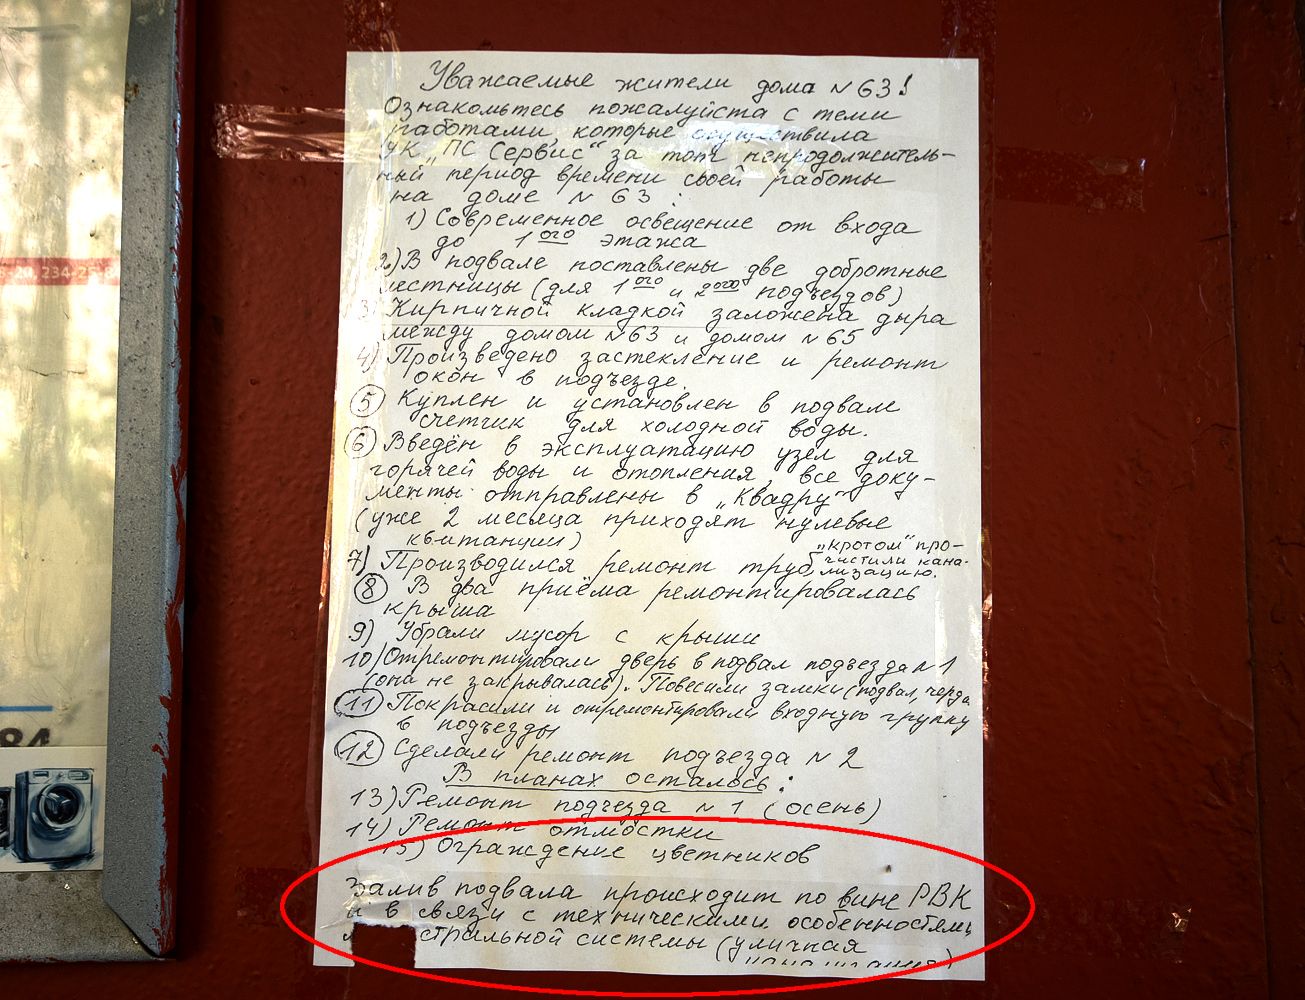 Уважаемые жители дома №63!
Ознакомьтесь пожалуйста с теми
работами, которые осуществила
УК „ПС Сервис“ за тот непродолжитель-
ный период времени своей работы
на доме №63:
1) Современное освещение от входа
до 1ого этажа
2) В подвале поставлены две добротные
лестницы (для 1ого и 2ого подъездов)
3) Кирпичной кладкой заложена дыра
между домом №63 и домом №65
4) Произведено застекление и ремонт
окон в подъезде.
5 Куплен и установлен в подвале
счетчик для холодной воды.
6 Введён в эксплуатацию узел для
горячей воды и отопления, все доку-
менты отправлены в „Квадру“
(уже 2 месяца приходят нулевые
квитанции)
7) Производился ремонт труб, „кротом“ про-
чистили кана-
лизацию.
8 В два приёма ремонтировалась
крыша
9) Убрали мусор с крыши
10) Отремонтировали дверь в подвал подъезда №1
(она не закрывалась). Повесили замки (подвал, черда
11 Покрасили и отремонтировали входную группу
в подъезды
12 Сделали ремонт подъезда №2
В планах осталось:
13) Ремонт подъезда №1 (осень)
14) Ремонт отмостки
15) Ограждение цветников
Залив подвала происходит по вине РВК
и в связи с техническими особенностями
стральной системы (уличная
8-20, 234-25-8
84